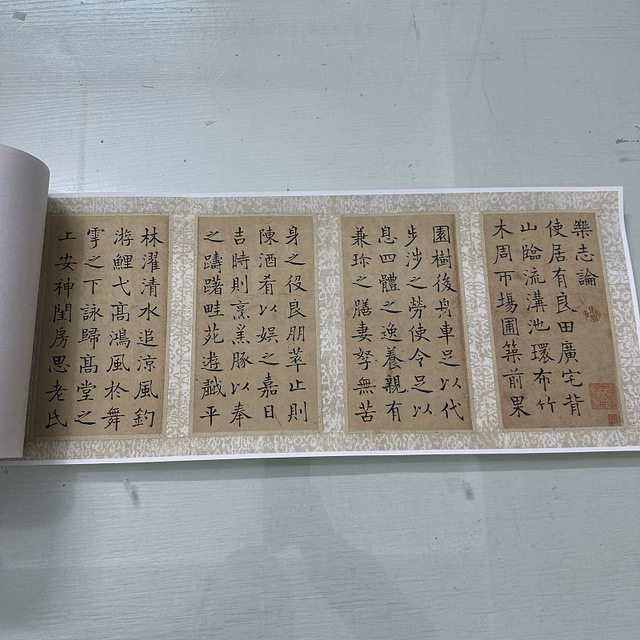 樂志論
使居有良田廣宅背
山臨流溝池環布竹
木周帀場圃築前果
園樹後舟車足以代
步涉之勞使令足以
息四體之逸養親有
兼珎之膳妻孥無苦
身之役良朋萃止則
陳酒肴以娯之嘉日
吉時則烹羔豚以奉
之躊躇畦苑遊戲平
林濯清水追涼風釣
游鯉弋髙鴻風於舞
雩之下詠歸髙堂之
上安神閨房思老氏